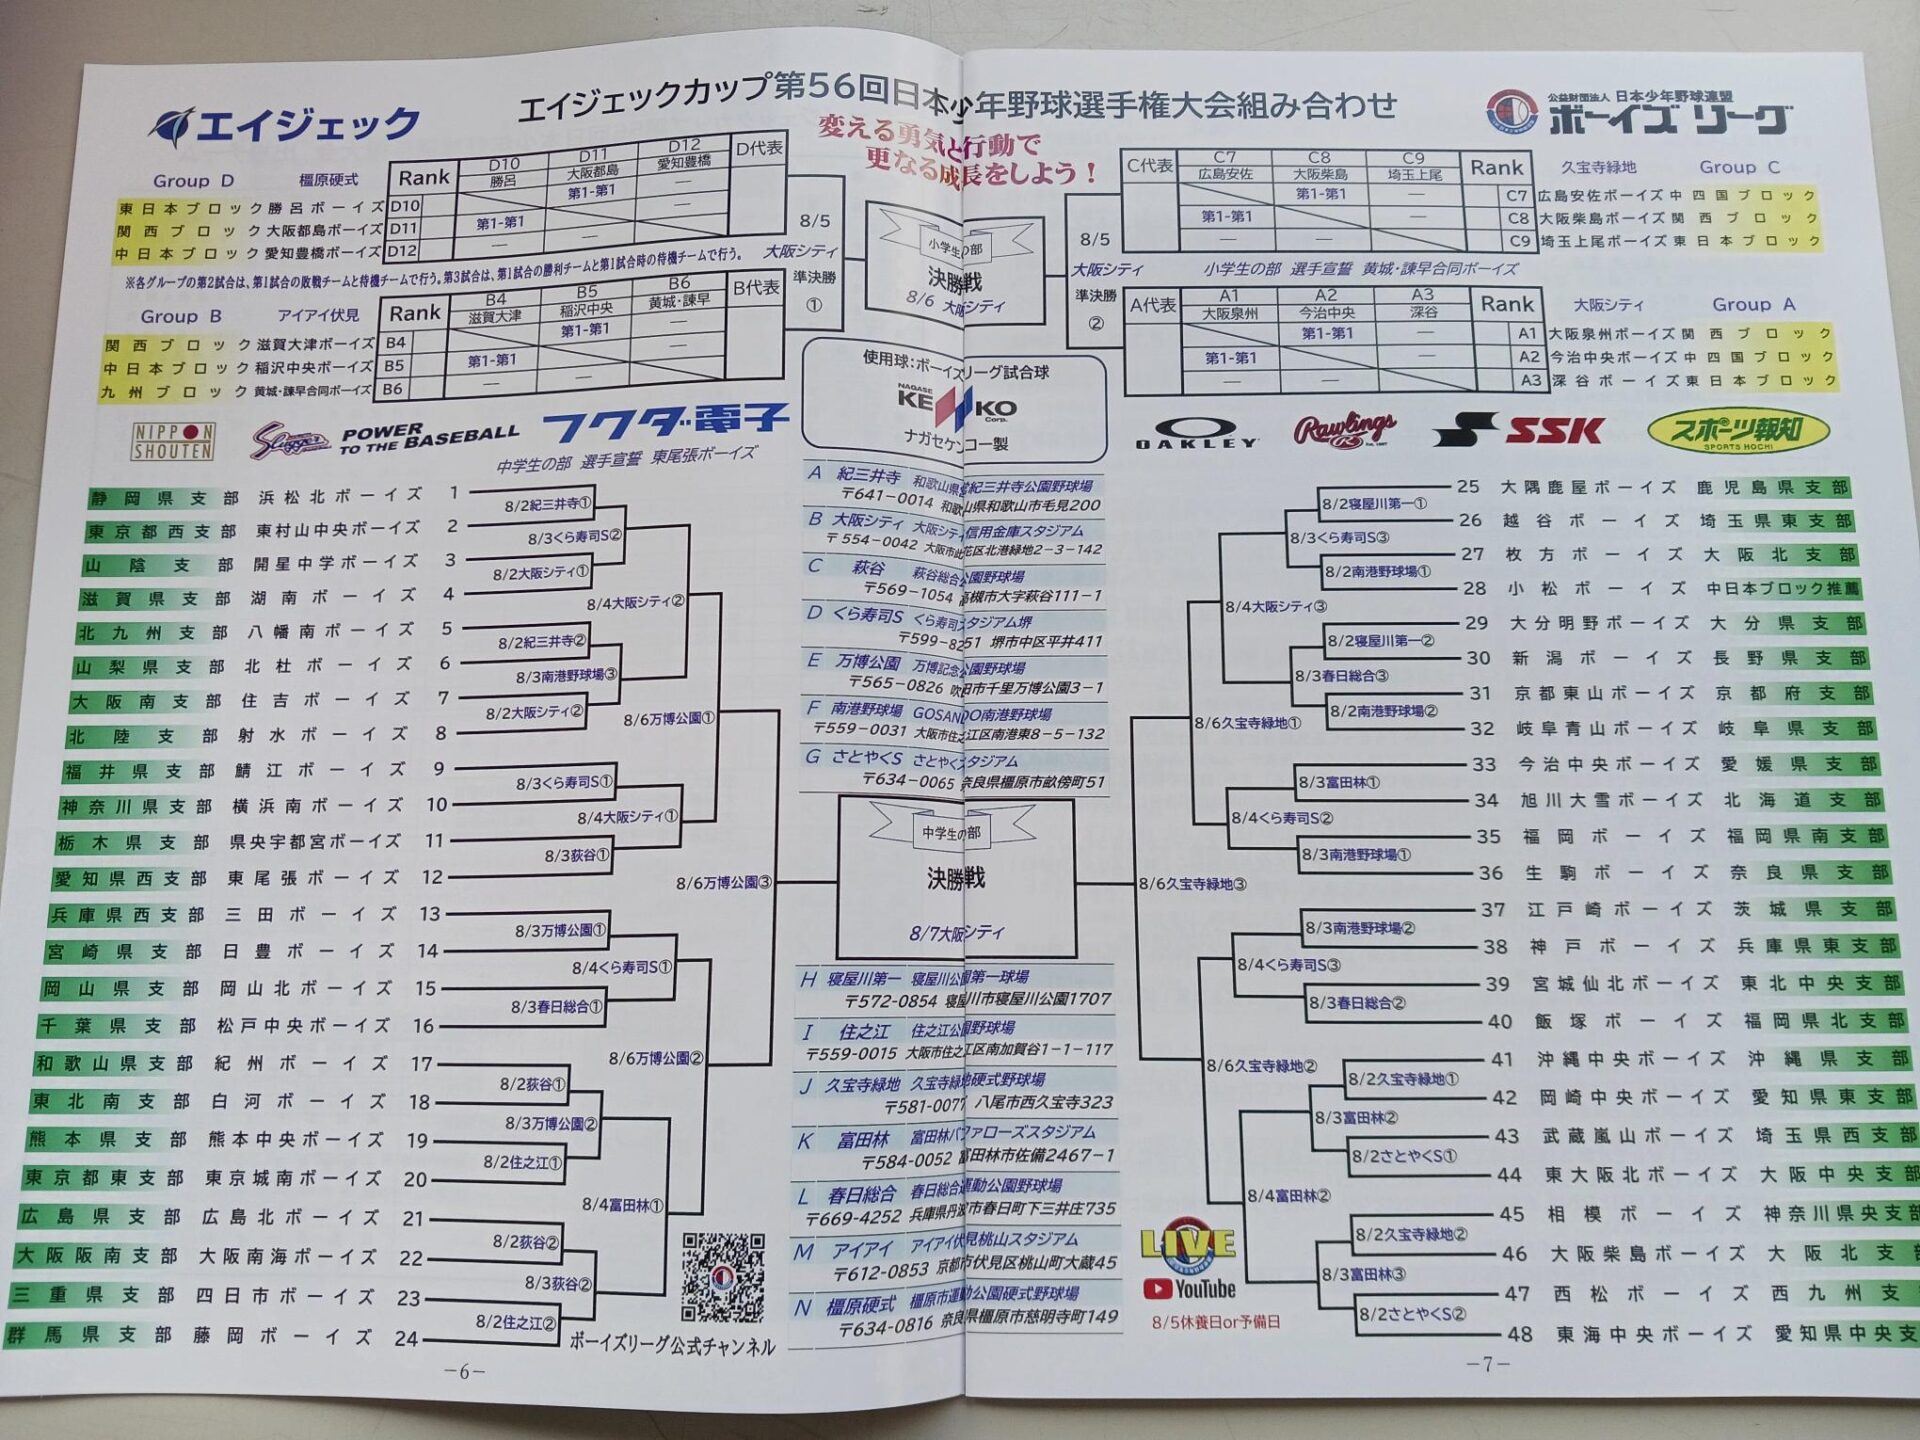 エイジェックカップ第56回日本少年野球選手権大会組み合わせ
エイジェック
公益財団法人 日本少年野球連盟
ボーイズリーグ
変える勇気と行動で
更なる成長をしよう！
Group D 橿原硬式
Rank D10 D11 D12 D代表
勝呂 大阪都島 愛知豊橋
東日本ブロック 勝呂ボーイズ D10 第1-第1 —
関西ブロック 大阪都島ボーイズ D11 第1-第1 —
中日本ブロック 愛知豊橋ボーイズ D12 — —
※各グループの第2試合は、第1試合の敗戦チームと待機チームで行う。第3試合は、第1試合の勝利チームと第1試合時の待機チームで行う。
Group B アイアイ伏見
Rank B4 B5 B6 B代表
滋賀大津 稲沢中央 黄城・諫早
関西ブロック 滋賀大津ボーイズ B4 第1-第1 —
中日本ブロック 稲沢中央ボーイズ B5 第1-第1 —
九州ブロック 黄城・諫早合同ボーイズ B6 — —
8/5
大阪シティ
準決勝
①
小学生の部
決勝戦
8/6 大阪シティ
8/5
大阪シティ
準決勝
②
C代表 C7 C8 C9 Rank 久宝寺緑地 Group C
広島安佐 大阪柴島 埼玉上尾
第1-第1 — C7 広島安佐ボーイズ 中四国ブロック
第1-第1 — C8 大阪柴島ボーイズ 関西ブロック
— — C9 埼玉上尾ボーイズ 東日本ブロック
小学生の部 選手宣誓 黄城・諫早合同ボーイズ
A代表 A1 A2 A3 Rank 大阪シティ Group A
大阪泉州 今治中央 深谷
第1-第1 — A1 大阪泉州ボーイズ 関西ブロック
第1-第1 — A2 今治中央ボーイズ 中四国ブロック
— — A3 深谷ボーイズ 東日本ブロック
使用球：ボーイズリーグ試合球
NAGASE
KENKO
Corp.
ナガセケンコー製
NIPPON
SHOUTEN
Slugger
POWER
TO THE BASEBALL
フクダ電子
OAKLEY
Rawlings
SSK
スポーツ報知
SPORTS HOCHI
中学生の部 選手宣誓 東尾張ボーイズ
静岡県支部 浜松北ボーイズ 1
8/2紀三井寺①
東京都西支部 東村山中央ボーイズ 2
8/3くら寿司S②
山陰支部 開星中学ボーイズ 3
8/2大阪シティ①
滋賀県支部 湖南ボーイズ 4
8/4大阪シティ②
北九州支部 八幡南ボーイズ 5
8/2紀三井寺②
山梨県支部 北杜ボーイズ 6
8/3南港野球場③
大阪南支部 住吉ボーイズ 7
8/2大阪シティ②
北陸支部 射水ボーイズ 8
8/6万博公園①
福井県支部 鯖江ボーイズ 9
8/3くら寿司S①
神奈川県支部 横浜南ボーイズ 10
8/4大阪シティ①
栃木県支部 県央宇都宮ボーイズ 11
8/3荻谷①
愛知県西支部 東尾張ボーイズ 12
8/6万博公園③
兵庫県西支部 三田ボーイズ 13
8/3万博公園①
宮崎県支部 日豊ボーイズ 14
8/4くら寿司S①
岡山県支部 岡山北ボーイズ 15
8/3春日総合①
千葉県支部 松戸中央ボーイズ 16
8/6万博公園②
和歌山県支部 紀州ボーイズ 17
8/2荻谷①
東北南支部 白河ボーイズ 18
8/3万博公園②
熊本県支部 熊本中央ボーイズ 19
8/2住之江①
東京都東支部 東京城南ボーイズ 20
8/4富田林①
広島県支部 広島北ボーイズ 21
8/2荻谷②
大阪阪南支部 大阪南海ボーイズ 22
8/3荻谷②
三重県支部 四日市ボーイズ 23
8/2住之江②
群馬県支部 藤岡ボーイズ 24
ボーイズリーグ公式チャンネル
A 紀三井寺 和歌山県営紀三井寺公園野球場
〒641-0014 和歌山県和歌山市毛見200
B 大阪シティ 大阪シティ信用金庫スタジアム
〒554-0042 大阪市此花区北港緑地2-3-142
C 萩谷 萩谷総合公園野球場
〒569-1054 高槻市大字萩谷111-1
D くら寿司S くら寿司スタジアム堺
〒599-8251 堺市中区平井411
E 万博公園 万博記念公園野球場
〒565-0826 吹田市千里万博公園3-1
F 南港野球場 GOSANDO南港野球場
〒559-0031 大阪市住之江区南港東8-5-132
G さとやくS さとやくスタジアム
〒634-0065 奈良県橿原市畝傍町51
中学生の部
決勝戦
8/7大阪シティ
H 寝屋川第一 寝屋川公園第一球場
〒572-0854 寝屋川市寝屋川公園1707
I 住之江 住之江公園野球場
〒559-0015 大阪市住之江区南加賀谷1-1-117
J 久宝寺緑地 久宝寺緑地硬式野球場
〒581-0077 八尾市西久宝寺323
K 富田林 富田林バファローズスタジアム
〒584-0052 富田林市佐備2467-1
L 春日総合 春日総合運動公園野球場
〒669-4252 兵庫県丹波市春日町下三井庄735
M アイアイ アイアイ伏見桃山スタジアム
〒612-0853 京都市伏見区桃山町大蔵45
N 橿原硬式 橿原市運動公園硬式野球場
〒634-0816 奈良県橿原市慈明寺町149
25 大隅鹿屋ボーイズ 鹿児島県支部
8/2寝屋川第一①
26 越谷ボーイズ 埼玉県東支部
8/3くら寿司S③
27 枚方ボーイズ 大阪北支部
8/2南港野球場①
28 小松ボーイズ 中日本ブロック推薦
8/4大阪シティ③
29 大分明野ボーイズ 大分県支部
8/2寝屋川第一②
30 新潟ボーイズ 長野県支部
8/3春日総合③
31 京都東山ボーイズ 京都府支部
8/2南港野球場②
32 岐阜青山ボーイズ 岐阜県支部
8/6久宝寺緑地①
33 今治中央ボーイズ 愛媛県支部
8/3富田林①
34 旭川大雪ボーイズ 北海道支部
8/4くら寿司S②
35 福岡ボーイズ 福岡県南支部
8/3南港野球場①
36 生駒ボーイズ 奈良県支部
8/6久宝寺緑地③
37 江戸崎ボーイズ 茨城県支部
8/3南港野球場②
38 神戸ボーイズ 兵庫県東支部
8/4くら寿司S③
39 宮城仙北ボーイズ 東北中央支部
8/3春日総合②
40 飯塚ボーイズ 福岡県北支部
8/6久宝寺緑地②
41 沖縄中央ボーイズ 沖縄県支部
8/2久宝寺緑地①
42 岡崎中央ボーイズ 愛知県東支部
8/3富田林②
43 武蔵嵐山ボーイズ 埼玉県西支部
8/2さとやくS①
44 東大阪北ボーイズ 大阪中央支部
8/4富田林②
45 相模ボーイズ 神奈川県央支部
8/2久宝寺緑地②
46 大阪柴島ボーイズ 大阪北支
8/3富田林③
47 西松ボーイズ 西九州支
8/2さとやくS②
48 東海中央ボーイズ 愛知県中央支
LIVE
YouTube
8/5休養日or予備日
－6－
－7－